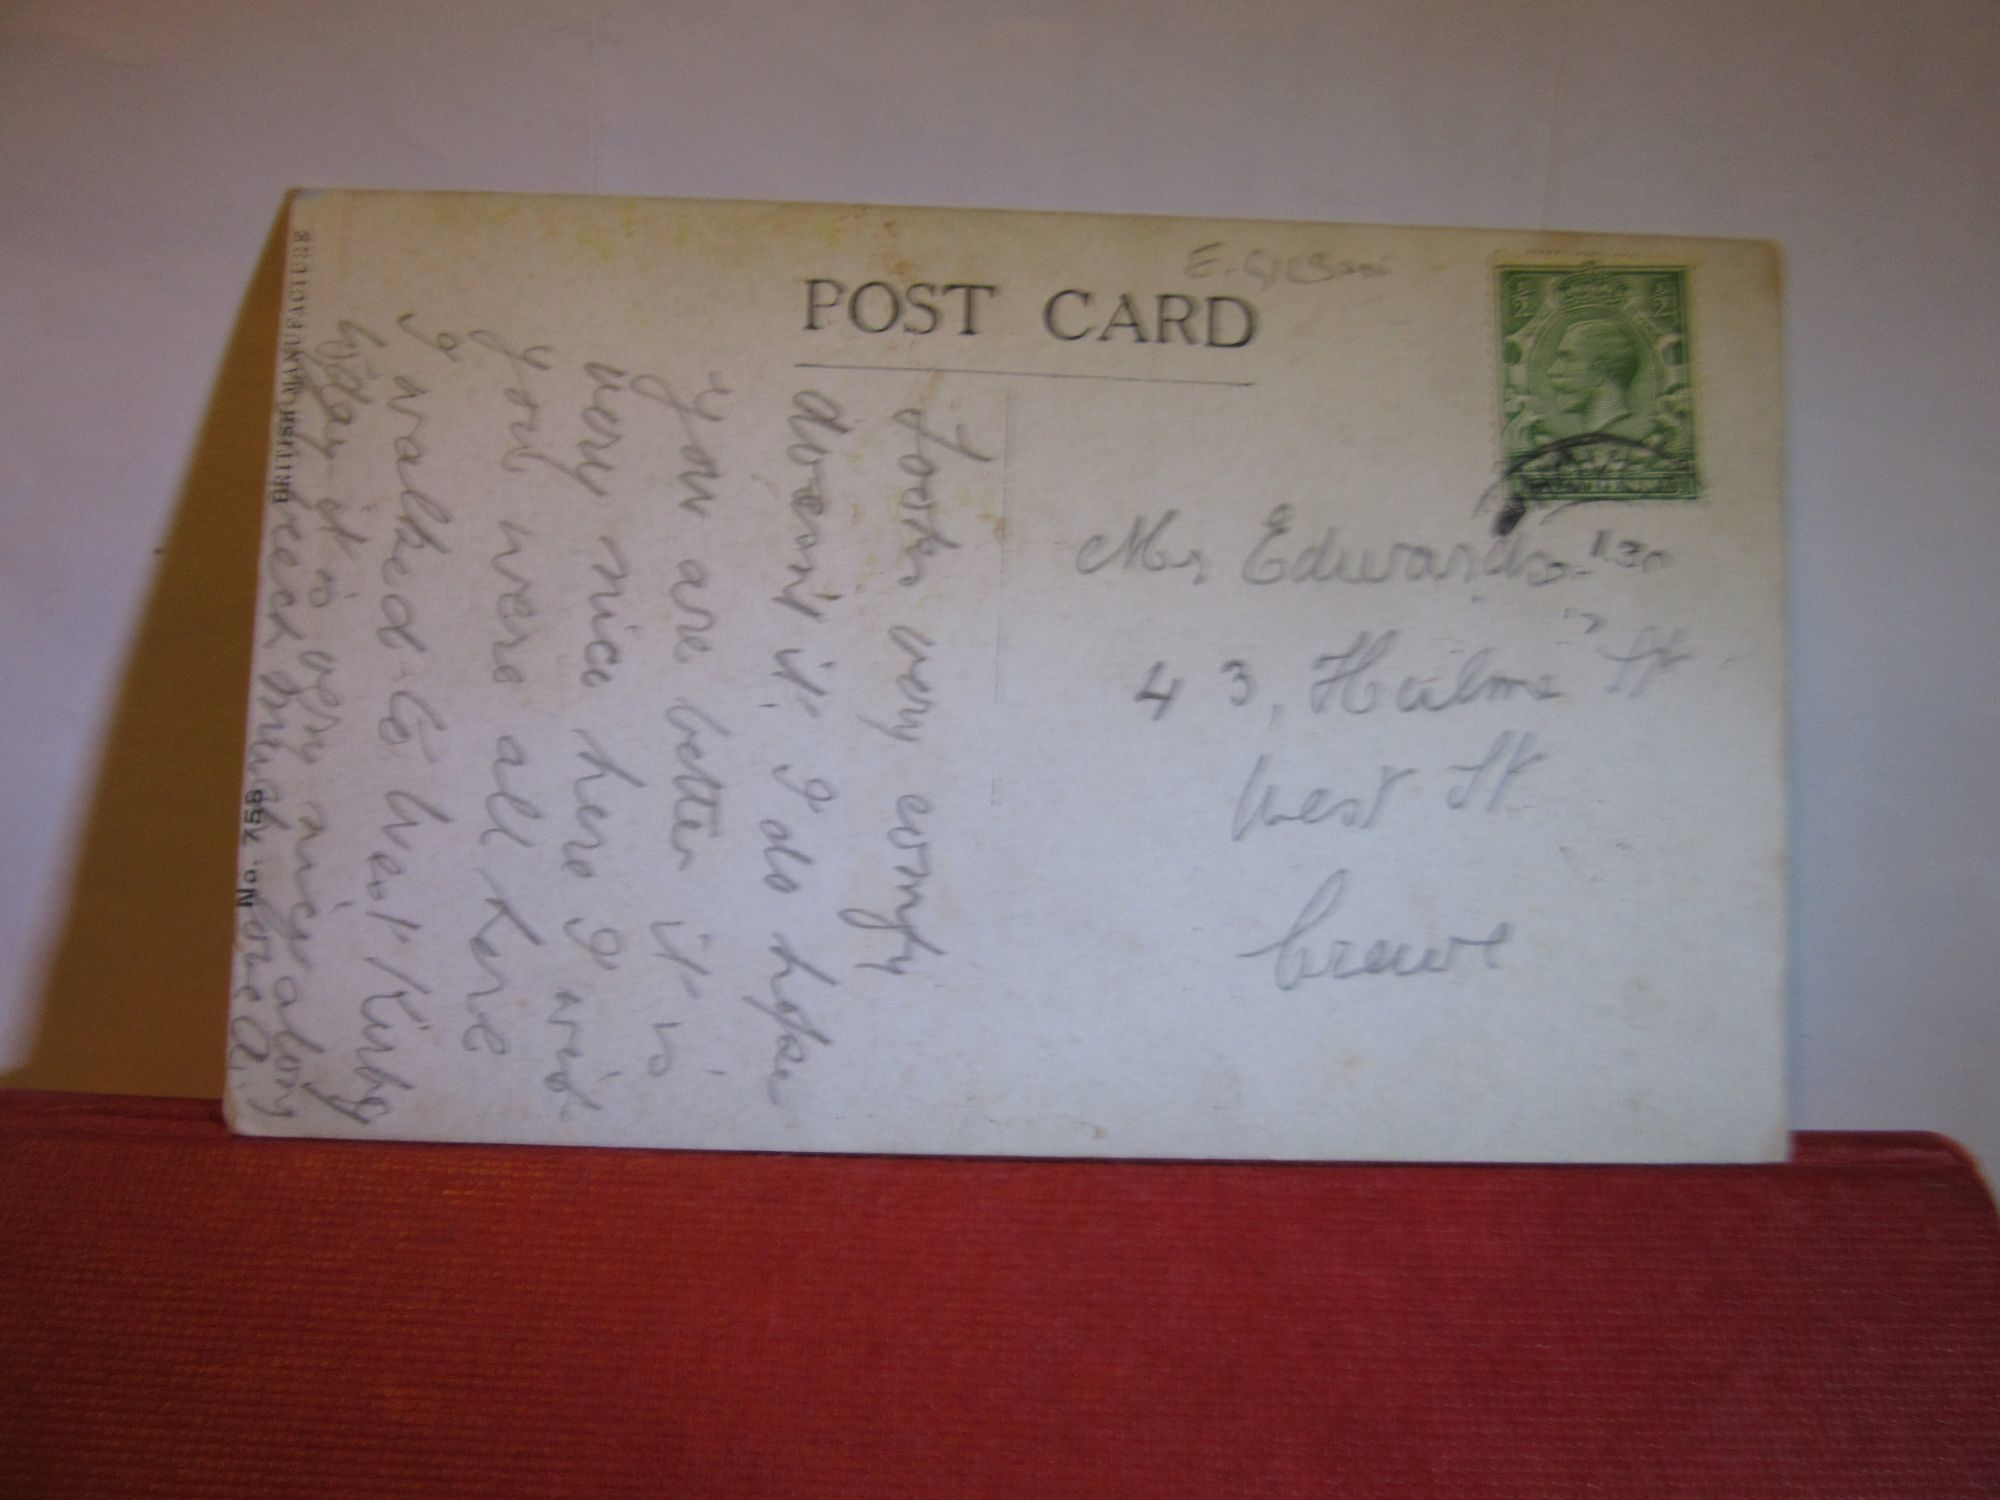 POST CARD
Looks very empty
doesn't it, I do hope
you are better it is
very nice here I wish
you were all here
I walked to West Kirby
today it is very nice along
beech much love A.
BRITISH MANUFACTURE
No. 755
Mrs Edwards
43, Hulme St
West St
Crewe